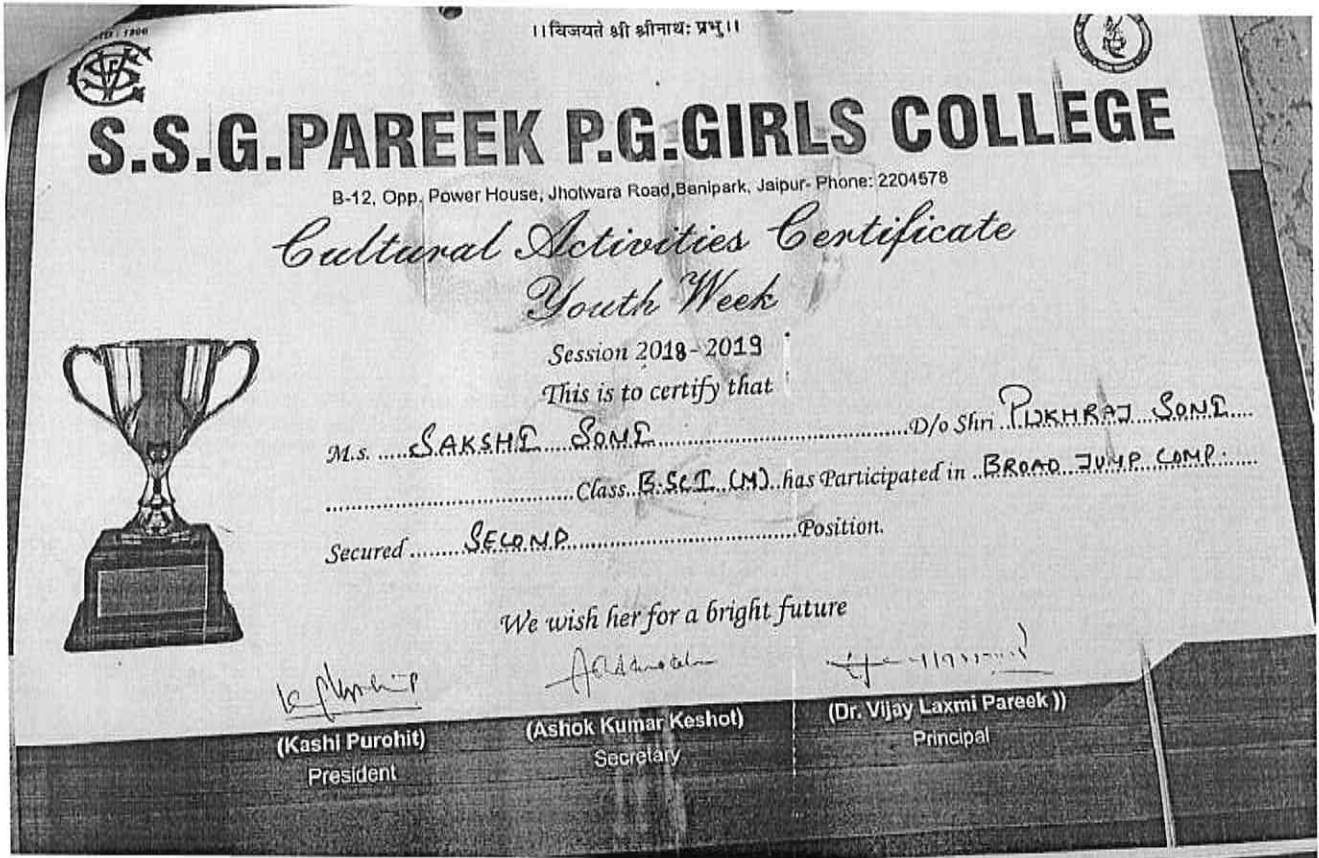 ।।विजयते श्री श्रीनाथः प्रभु।।
S.S.G.PAREEK P.G.GIRLS COLLEGE
B-12, Opp. Power House, Jhotwara Road,Banipark, Jaipur- Phone: 2204578
Cultural Activities Certificate
Youth Week
Session 2018-2019
This is to certify that
M.s. .....SAKSHI SONI..........D/o Shri..PUKHRAJ SONI....
..........Class..B.Sc I (M)..has Participated in ..BROAD JUMP COMP.....
Secured ........SECOND..........Position.
We wish her for a bright future
(Kashi Purohit) (Ashok Kumar Keshot) (Dr. Vijay Laxmi Pareek ))
President Secretary Principal